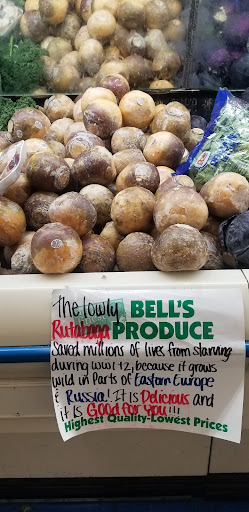 The lowly BELL'S
Rutabaga PRODUCE
Saved millions of lives from starving
during WW1+2, because it grows
wild in Parts of Eastern Europe
& Russia! It is Delicious and
it is Good for You!!!
Highest Quality-Lowest Prices